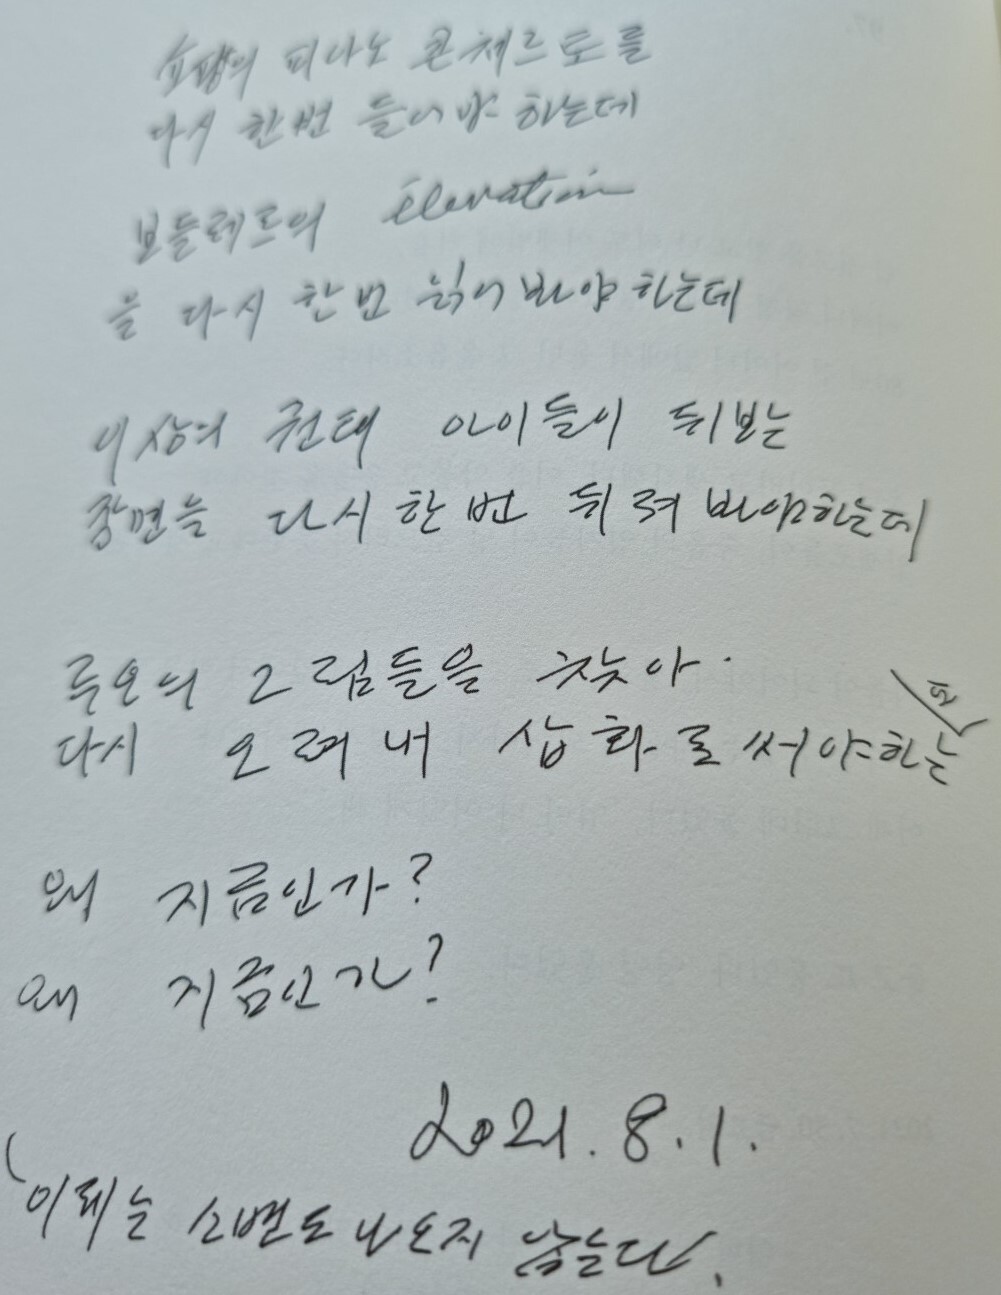 쇼팽의 피아노 콘체르토를
다시 한번 들어야 하는데
보들레르의 élevation
을 다시 한번 읽어봐야 하는데
이상의 권태 아이들이 뒤보는
장면을 다시 한번 뒤져 봐야하는데
루오의 그림들을 찾아
다시 오려내 삽화로 써야하는데
왜 지금인가?
왜 지금인가?
2021.8.1.
(이제는 소변도 나오지 않는다.